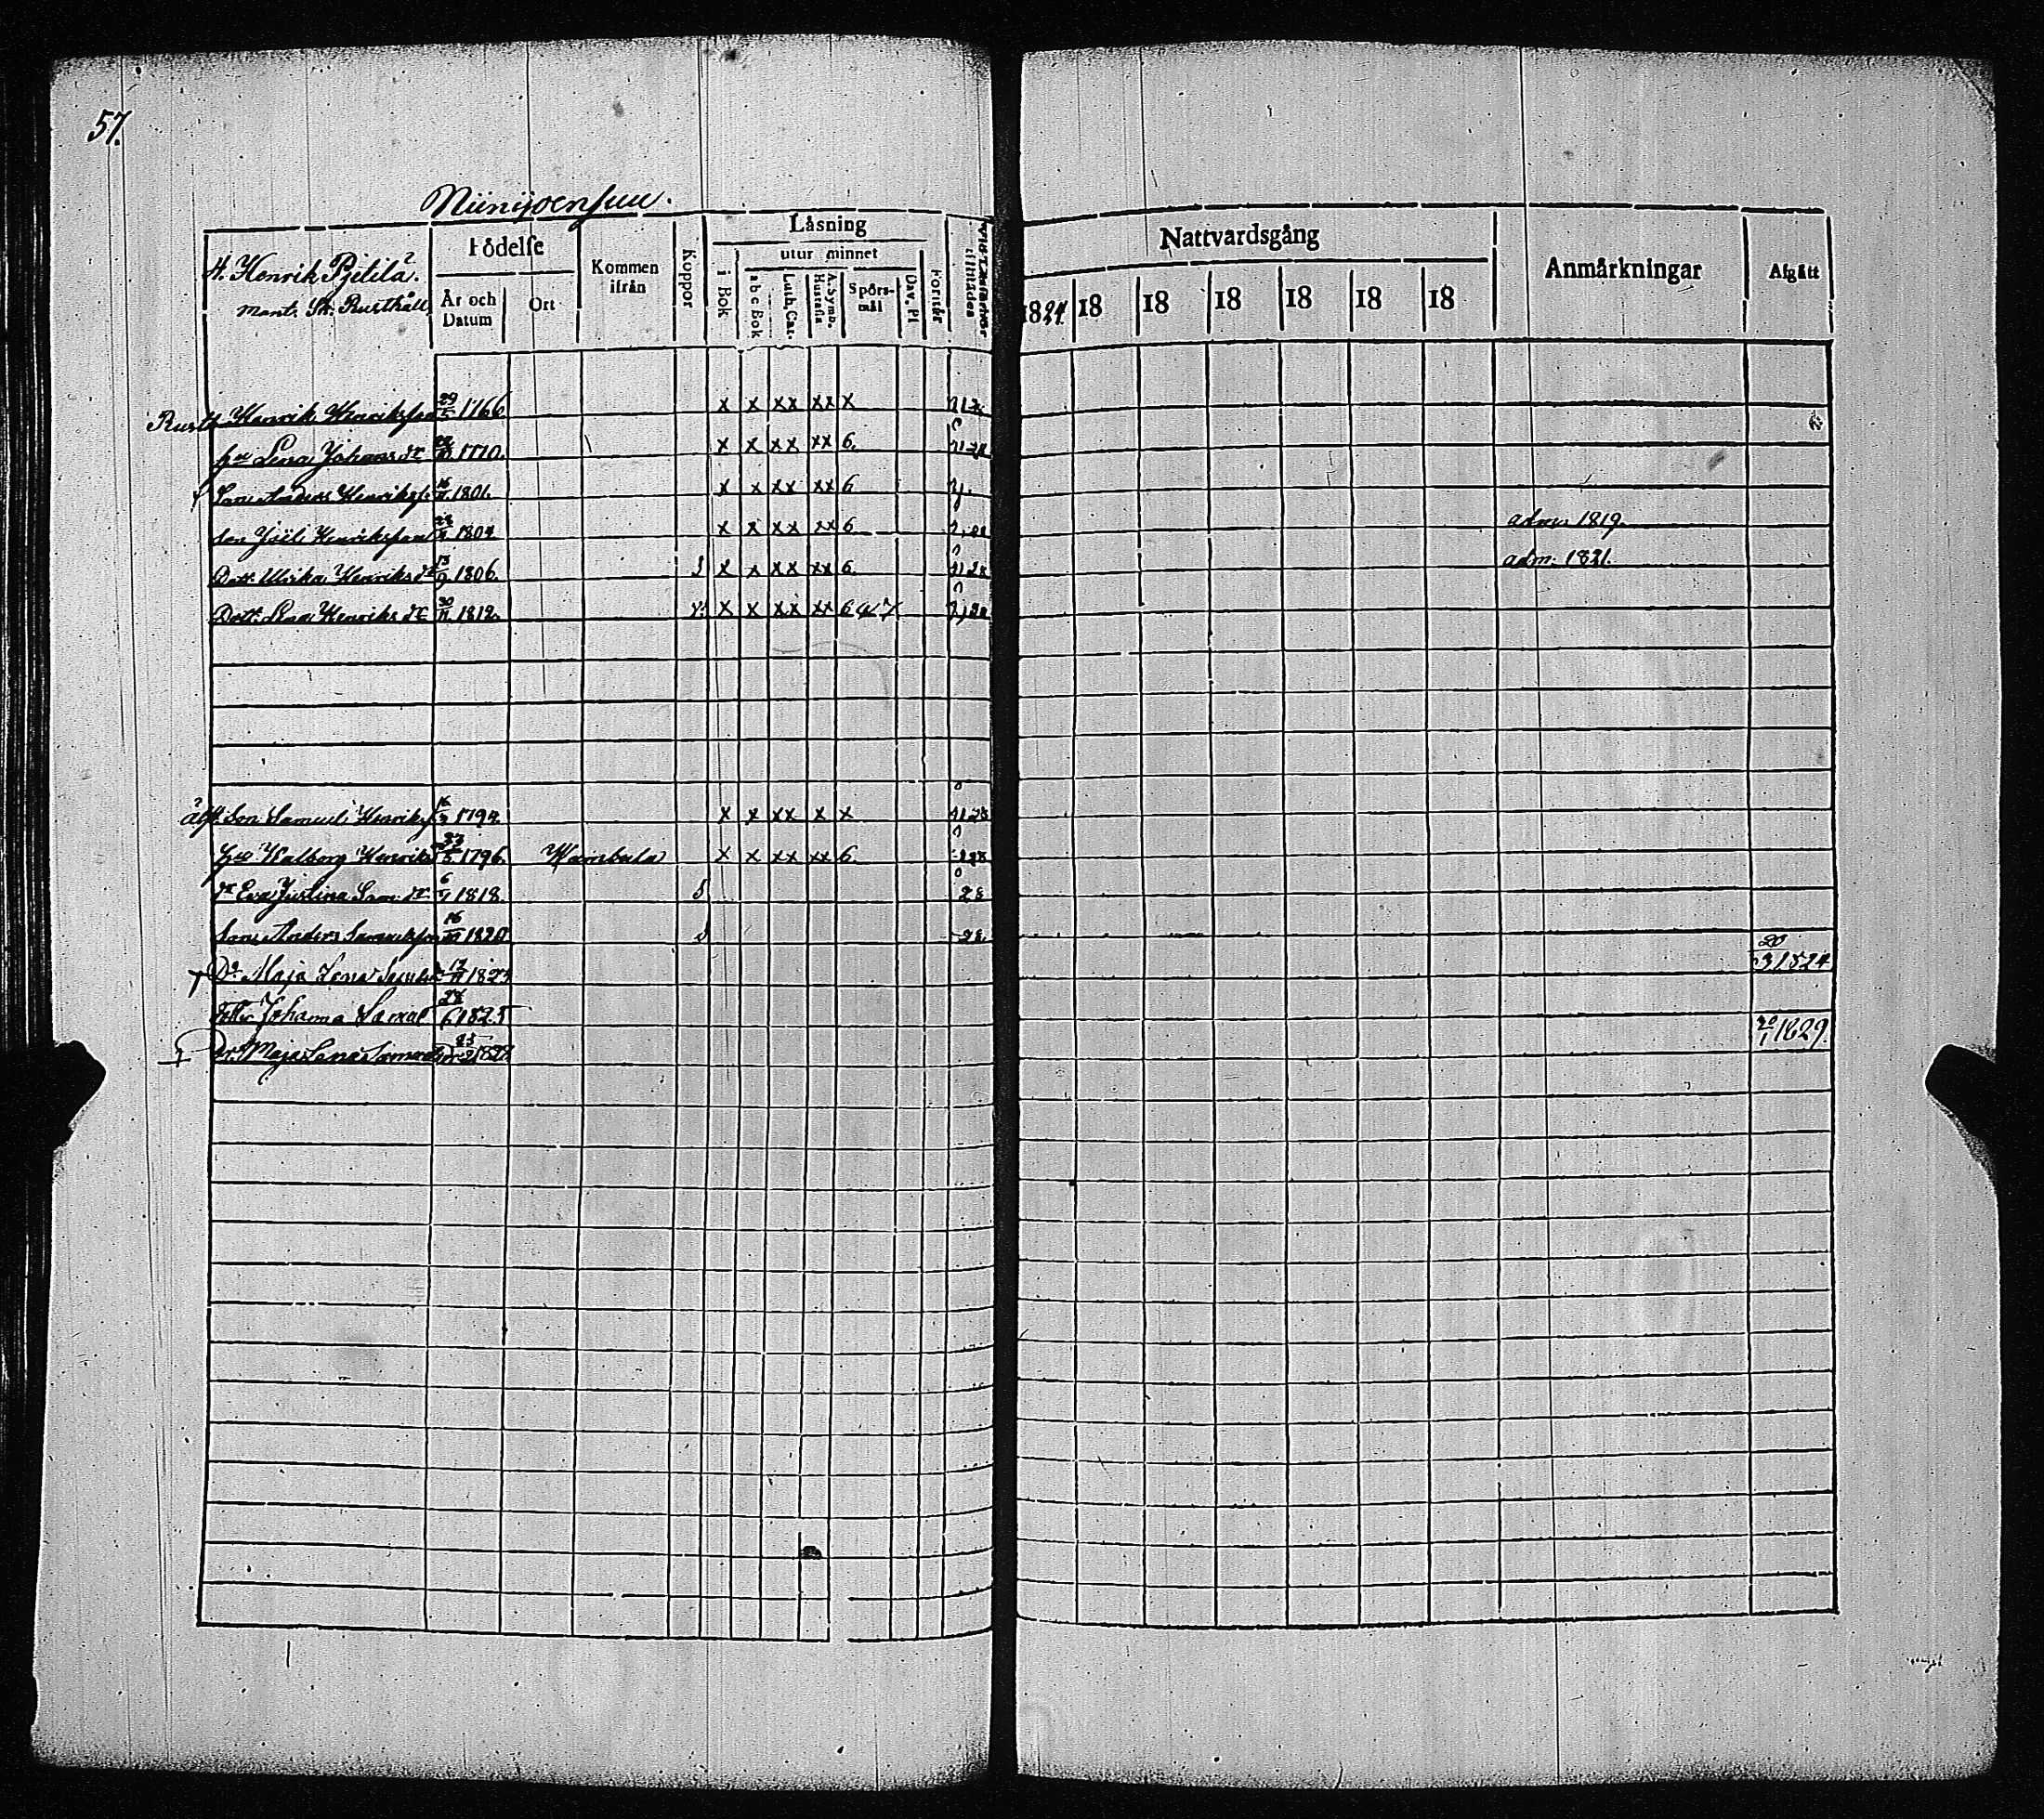 57.
Niinijoensuu.
H. Henrik Pjetilä.
mant. Sk. Rusthåll
Födelse
År och Datum
Ort
Kommen ifrån
Koppor
Läsning
i Bok
utur minnet
a b c Bok
Luth. Cat.
A. Symb. Hustafla
Spörs-mål
Dav. Pl
Förstår
Nattvardsgång
1824. 18 18 18 18 18 18
Anmärkningar
Afgått
Rusth. Henrik Henriksson 29/5 1766 x x xx xx x
hu Lena Johans dr 1770. x x xx xx 6.
Son Anders Henrikss. 1801. x x xx xx 6
Son Joël Henriksson 1804 x x xx xx 6 adm. 1819.
Dott. Ulrika Henriks dr 13/9 1806. x x xx xx 6. adm. 1821.
Dott. Lena Henriks dr 30/11 1812. x x xx xx 6
äst. Son Samuel Henrikss 16/3 1794. x x xx x x
hu Walborg Henriks 1796. Wambula x x xx xx 6.
dr Eva Justina Sam. dr 1818. 28
Son Anders Samuelsson 16 1820 28
† Dr Maja Lena Samuels 17 1823 20/3 1824
Johanna Samuel 28/6 1825
† Dr. Maja Lena Samuels 23 1828 20/1 1829.